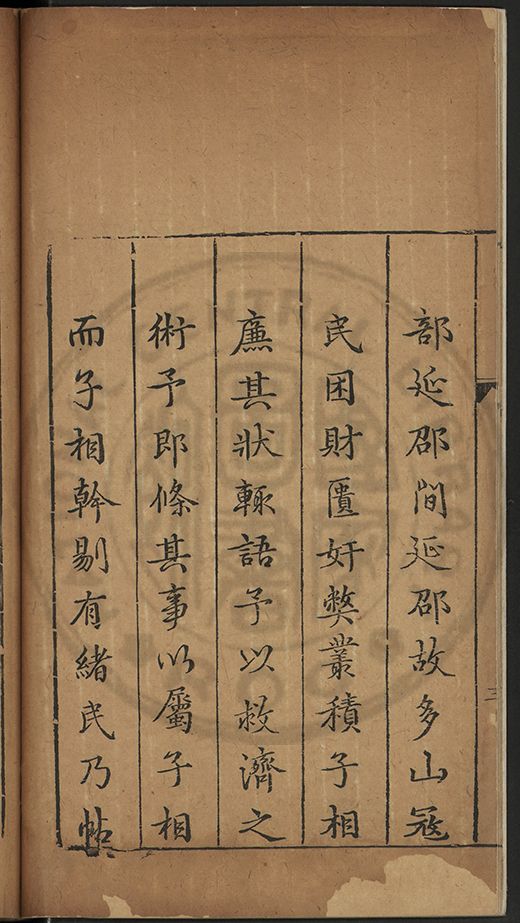 部延邵間延邵故多山冦
民困財匱奸獘叢積子相
廉其狀輒語予以救濟之
術予即條其事以屬子相
而子相幹剔有緒民乃帖
三